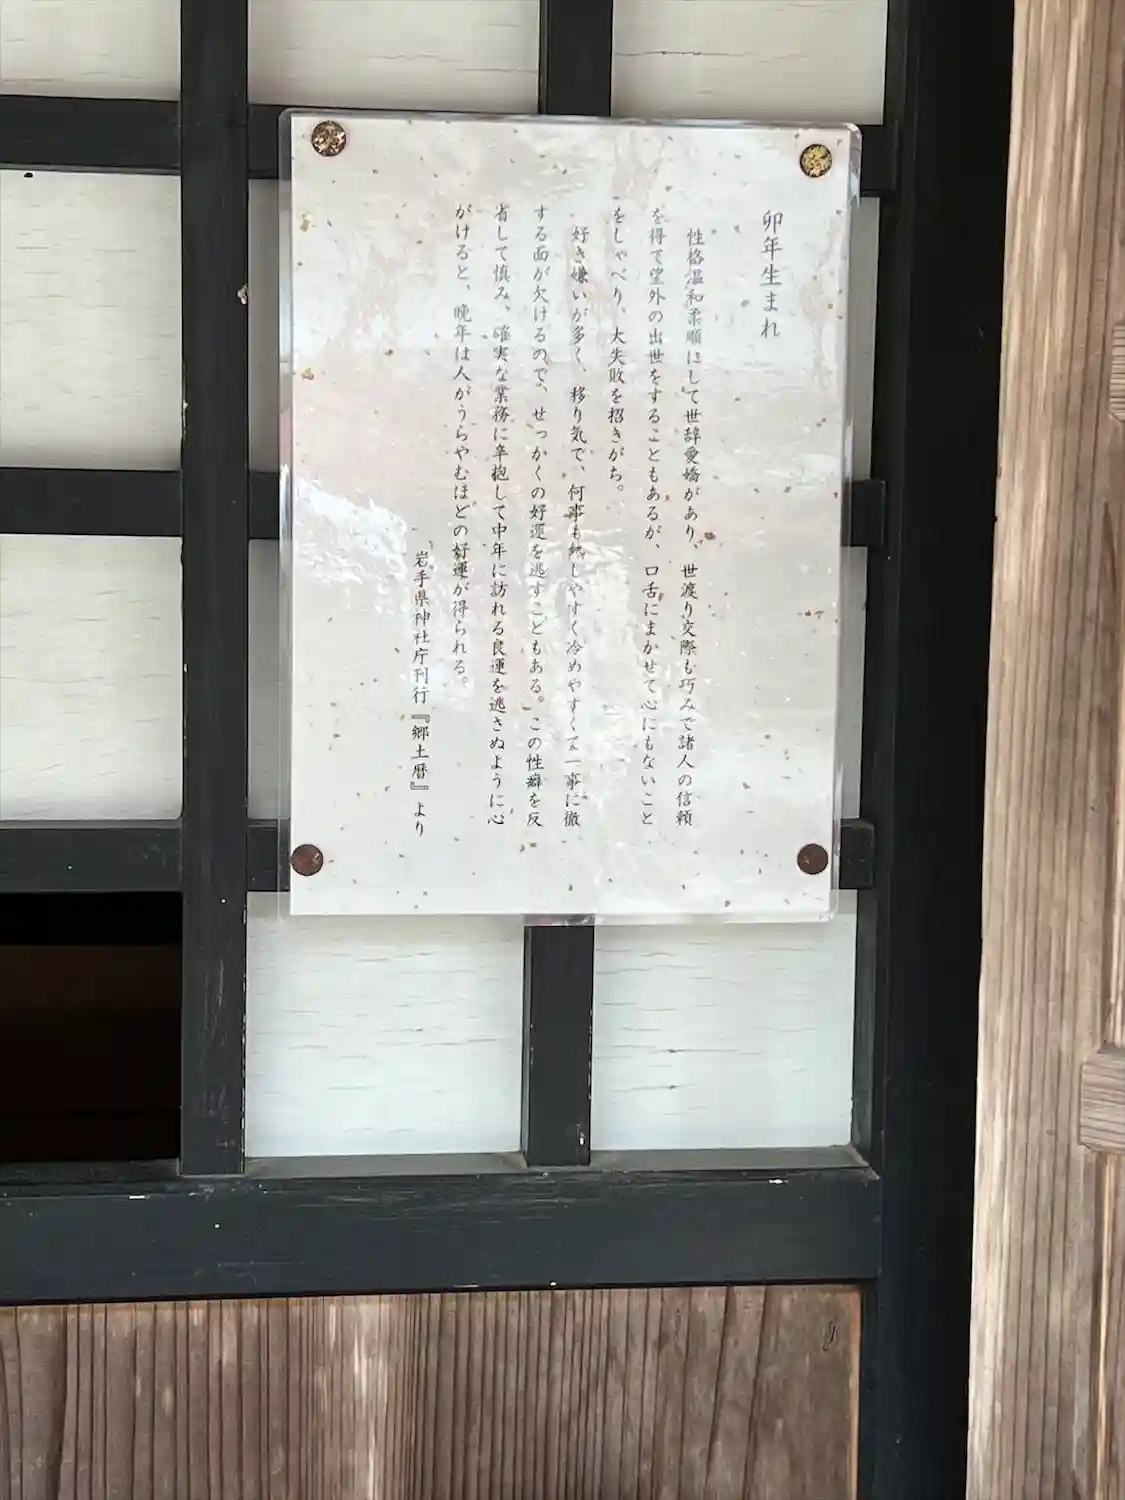 卯年生まれ
性格温和柔順にして世辞愛嬌があり、世渡り交際も巧みで諸人の信頼
を得て望外の出世をすることもあるが、口舌にまかせて心にもないこと
をしゃべり、大失敗を招きがち。
好き嫌いが多く、移り気で、何事も熱しやすく冷めやすくて一事に徹
する面が欠けるので、せっかくの好運を逃すこともある。この性癖を反
省して慎み、確実な業務に辛抱して中年に訪れる良運を逃さぬように心
がけると、晩年は人がうらやむほどの好運が得られる。
岩手県神社庁刊行『郷土暦』より